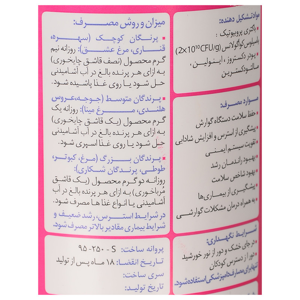 مواد تشکیل دهنده:
باکتری پروبیوتیک
(2×10¹⁰CFU/g)
پودر دکستروز، اینولین،
مالتودکسترین
موارد مصرف:
حفظ سلامت دستگاه گوارش
پیشگیری از استرس و افزایش شادابی
تقویت سیستم ایمنی
بهبود راندمان رشد
بهبود شاخص سلامت
پیشگیری از بیماری‌ها
همراه درمان مشکلات گوارشی
شرایط نگهداری:
در جای خشک و دور از نور خورشید
دور از دسترس کودکان
میزان و روش مصرف:
پرندگان کوچک (سهره،
قناری، مرغ عشق): روزانه نیم
گرم محصول (نصف قاشق چایخوری)
به ازای هر پرنده بالغ در آب آشامیدنی
حل شود یا روی غذا پاشیده شود.
پرندگان متوسط (جوجه، عروس
هلندی، مرغ مینا): روزانه یک گرم
محصول (یک قاشق چایخوری)
به ازای هر پرنده بالغ در آب آشامیدنی
حل شود یا روی غذا اسپری شود.
پرندگان بزرگ (مرغ، کبوتر،
طوطی، پرندگان شکاری):
روزانه دو گرم محصول (یک قاشق
مرباخوری) به ازای هر پرنده بالغ در آب
آشامیدنی یا انواع غذا ها مصرف شود.
در شرایط استرس، رشد ضعیف و
شرایط بیماری مقادیر بالاتر توصیه می‌شود.
پروانه ساخت: S - ۲۵۰ - ۹۵
تاریخ انقضا: ۱۸ ماه پس از تولید
سری ساخت:
تاریخ تولید: